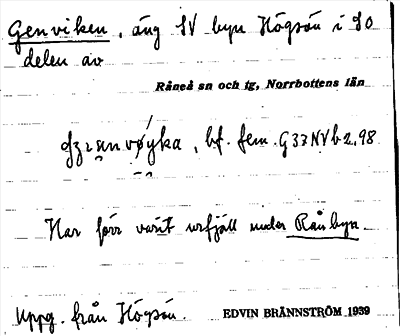 Genviken, äng SV byn Högsön i SO
delen av
Råneå sn och tg, Norrbottens län
bf. fem. G 33 NV b 2, 98
Har förr varit urfjäll under Rånbyn
Uppg. från Högsön. EDVIN BRÄNNSTRÖM 1939